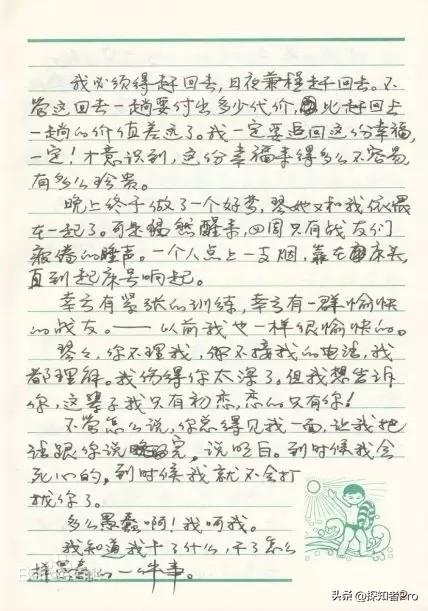 我必须得赶回去,日夜兼程赶回去。不
管这回去一趟要付出多少代价,比赶回去
一趟的价值差远了。我一定要追回这份幸福,
一定!才意识到,这份幸福来得多么不容易,
有多么珍贵。
晚上终于做了一个好梦,琴她又和我依偎
在一起了。可是惕然醒来,四周只有战友们
疲倦的睡声。一个人点上一支烟,靠在床头,
直到起床号响起。
幸亏有紧张的训练,幸亏有一群愉快
的战友。——以前我也一样很愉快的。
琴々,你不理我,你不接我的电话,我
都理解。我伤得你太深了。但我想告诉
你,这辈子我只有初恋,恋的只有你!
不管怎么说,你总得见我一面,让我把
话跟你说完,说明白。到时候我会
死心的,到时候我就不会打
扰你了。
多么愚蠢啊!我呵我。
我知道我干了什么,干了怎么
样愚蠢的一件事。
头条 @探知者Pro